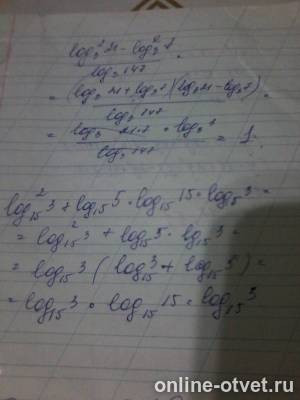 log₃² 21 - log₃² 7
log₃ 147
= (log₃ 21 + log₃ 7)(log₃ 21 - log₃ 7)
log₃ 147
= log₃ 21·7 · log₃ 3
log₃ 147 = 1.
log²₁₅ 3 + log₁₅ 5 · log₁₅ 15 · log₁₅ 3 =
= log²₁₅ 3 + log₁₅ 5 · log₁₅ 3 =
= log₁₅ 3 (log₁₅ 3 + log₁₅ 5) =
= log₁₅ 3 · log₁₅ 15 = log₁₅ 3
online-otvet.ru